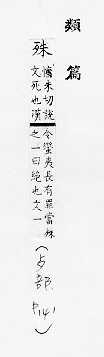 類篇
殊
慵朱切說
文死也漢
令蠻夷長有罪當殊
之一曰絶也文一
(歺部
P.141)